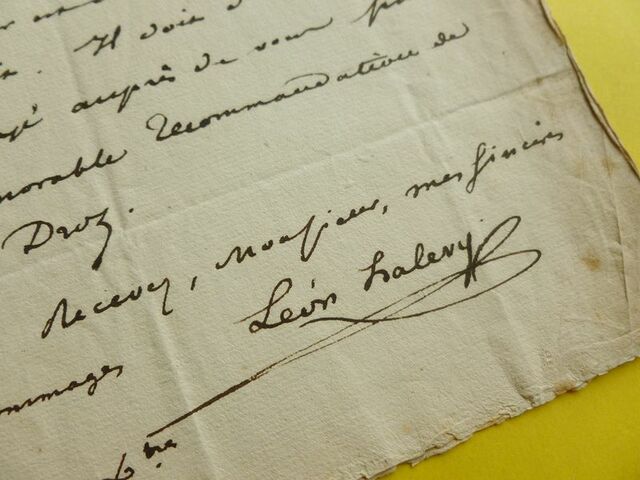 . Il doit
auprès de vous
norable recommandation de
Droz.
Recevez, Monsieur, mes sincères
Léon halevy
ommages
bre